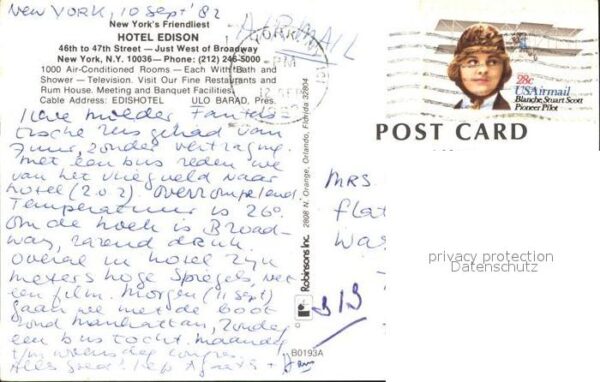 New York, 10 Sept' 82
AIRMAIL
New York's Friendliest
HOTEL EDISON
46th to 47th Street — Just West of Broadway
New York, N.Y. 10036 — Phone: (212) 246-5000
1000 Air-Conditioned Rooms — Each With Bath and
Shower — Television. Visit Our Fine Restaurants and
Rum House. Meeting and Banquet Facilities.
Cable Address: EDISHOTEL ULO BARAD, Pres.
PM
12 SEP
28c
USAirmail
Blanche Stuart Scott
Pioneer Pilot
POST CARD
Lieve moeder Fantas-
tische reis gehad van
7 uur, zonder vertraging.
Met een bus reden we
van het vliegveld naar
hotel (202) overrompelend.
Temperatuur is 26°.
om de hoek is Broad-
way, razend druk.
Overal in hotel zijn
meters hoge Spiegels, net
een film. Morgen (11 sept)
gaan we met de boot
rond Manhattan, zondag
een bus tocht. maandag
t/m woensdag congres.
Alles great!
MRS
flat
Was
privacy protection
Datenschutz
Robinsons Inc. 2808 N. Orange, Orlando, Florida 32804
B0193A